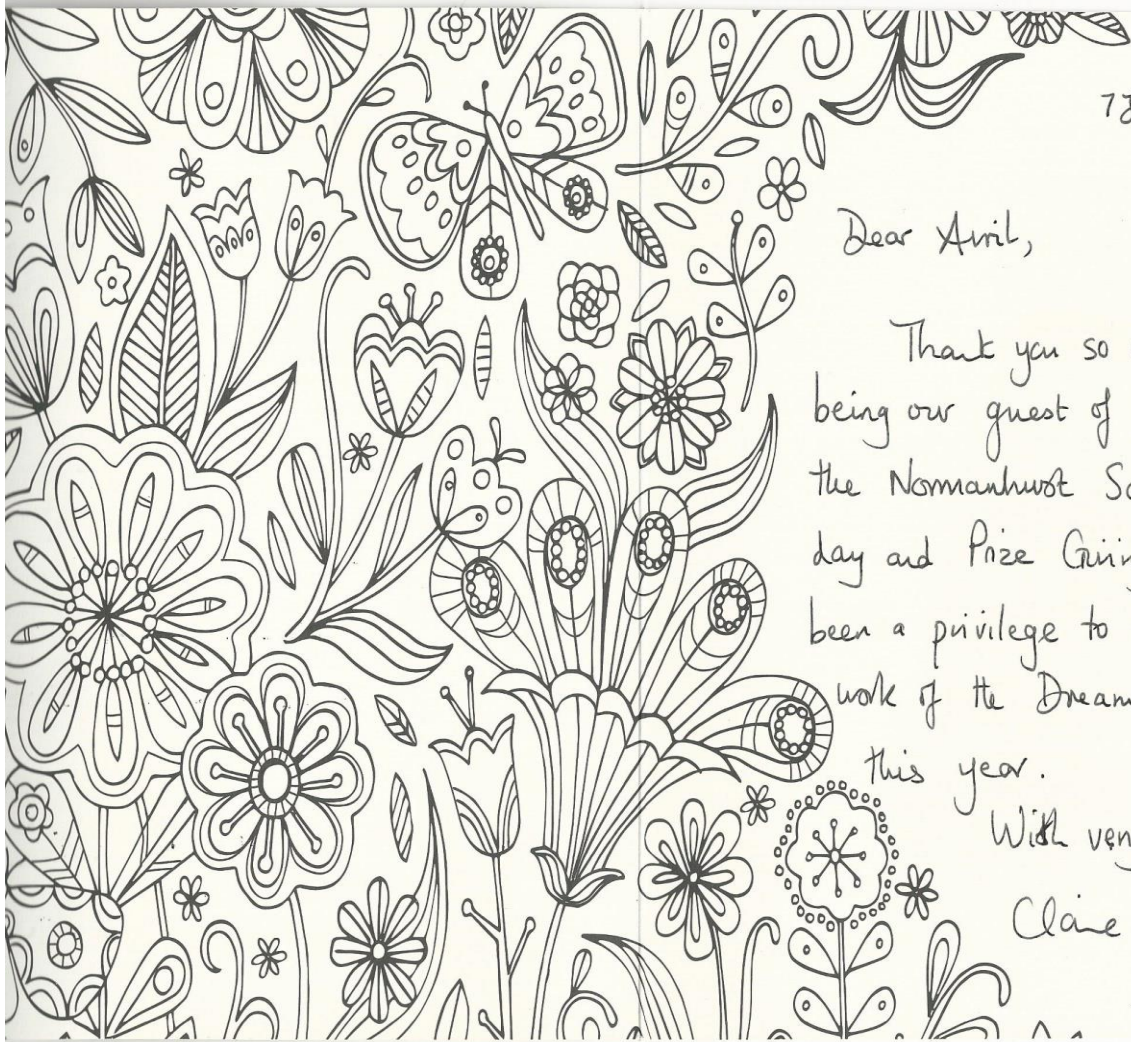 Dear Avril,
Thank you so
being our guest of
the Normanhurst Sc
day and Prize Givin
been a privilege to
work of the Dream
this year.
With very
Claire